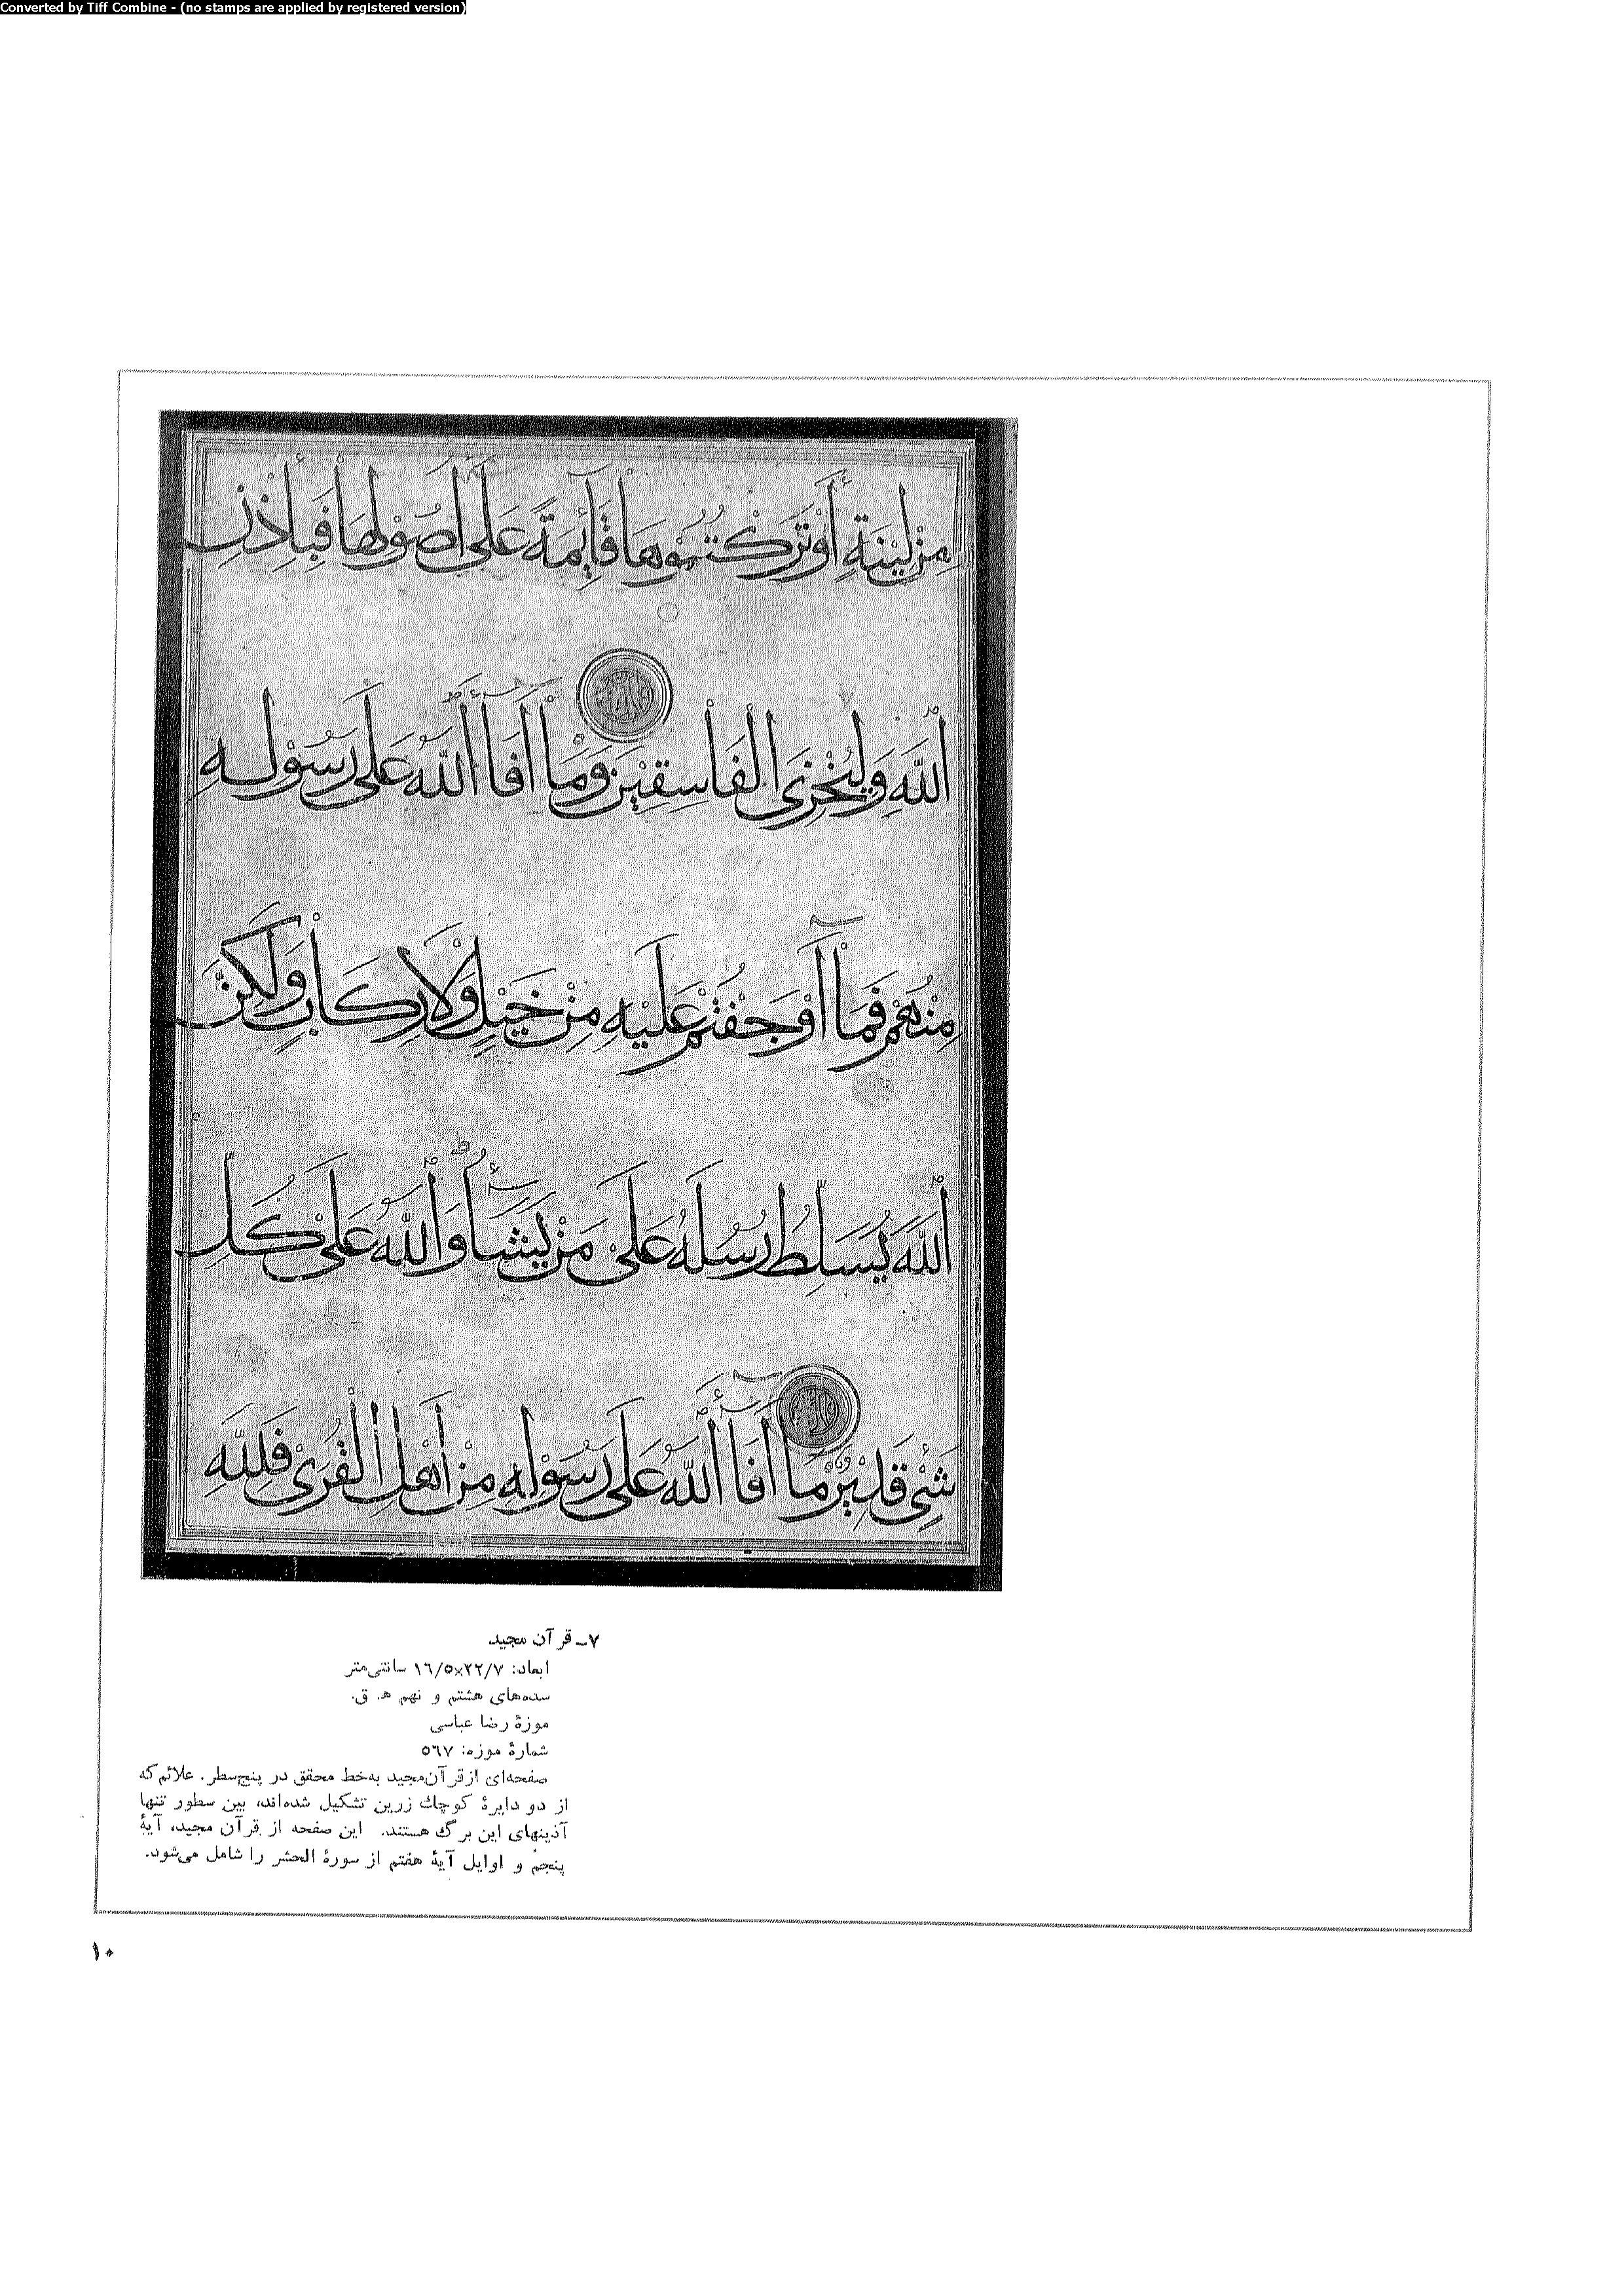 Converted by Tiff Combine - (no stamps are applied by registered version)
مِن لِينَةٍ أَوْ تَرَكْتُمُوهَا قَآئِمَةً عَلَىٰ أُصُولِهَا فَبِإِذْنِ
اللَّهِ وَلِيُخْزِيَ الْفَاسِقِينَ وَمَا أَفَآءَ اللَّهُ عَلَىٰ رَسُولِهِ
مِنْهُمْ فَمَآ أَوْجَفْتُمْ عَلَيْهِ مِنْ خَيْلٍ وَلَا رِكَابٍ وَلَٰكِنَّ
اللَّهَ يُسَلِّطُ رُسُلَهُ عَلَىٰ مَن يَشَآءُ وَاللَّهُ عَلَىٰ كُلِّ
شَيْءٍ قَدِيرٌ مَا أَفَآءَ اللَّهُ عَلَىٰ رَسُولِهِ مِنْ أَهْلِ الْقُرَىٰ فَلِلَّهِ
٧ـ قرآن مجید
ابعاد: ١٦/٥×٢٢/٧ سانتی‌متر
سده‌های هشتم و نهم ه‍. ق.
موزهٔ رضا عباسی
شمارهٔ موزه: ٥٦٧
صفحه‌ای از قرآن مجید به‌خط محقق در پنج سطر. علائم که
از دو دایرهٔ کوچك زرین تشکیل شده‌اند، بین سطور تنها
آذینهای این برگ هستند. این صفحه از قرآن مجید، آیهٔ
پنجم و اوایل آیهٔ هفتم از سورهٔ الحشر را شامل می‌شود.
١٠